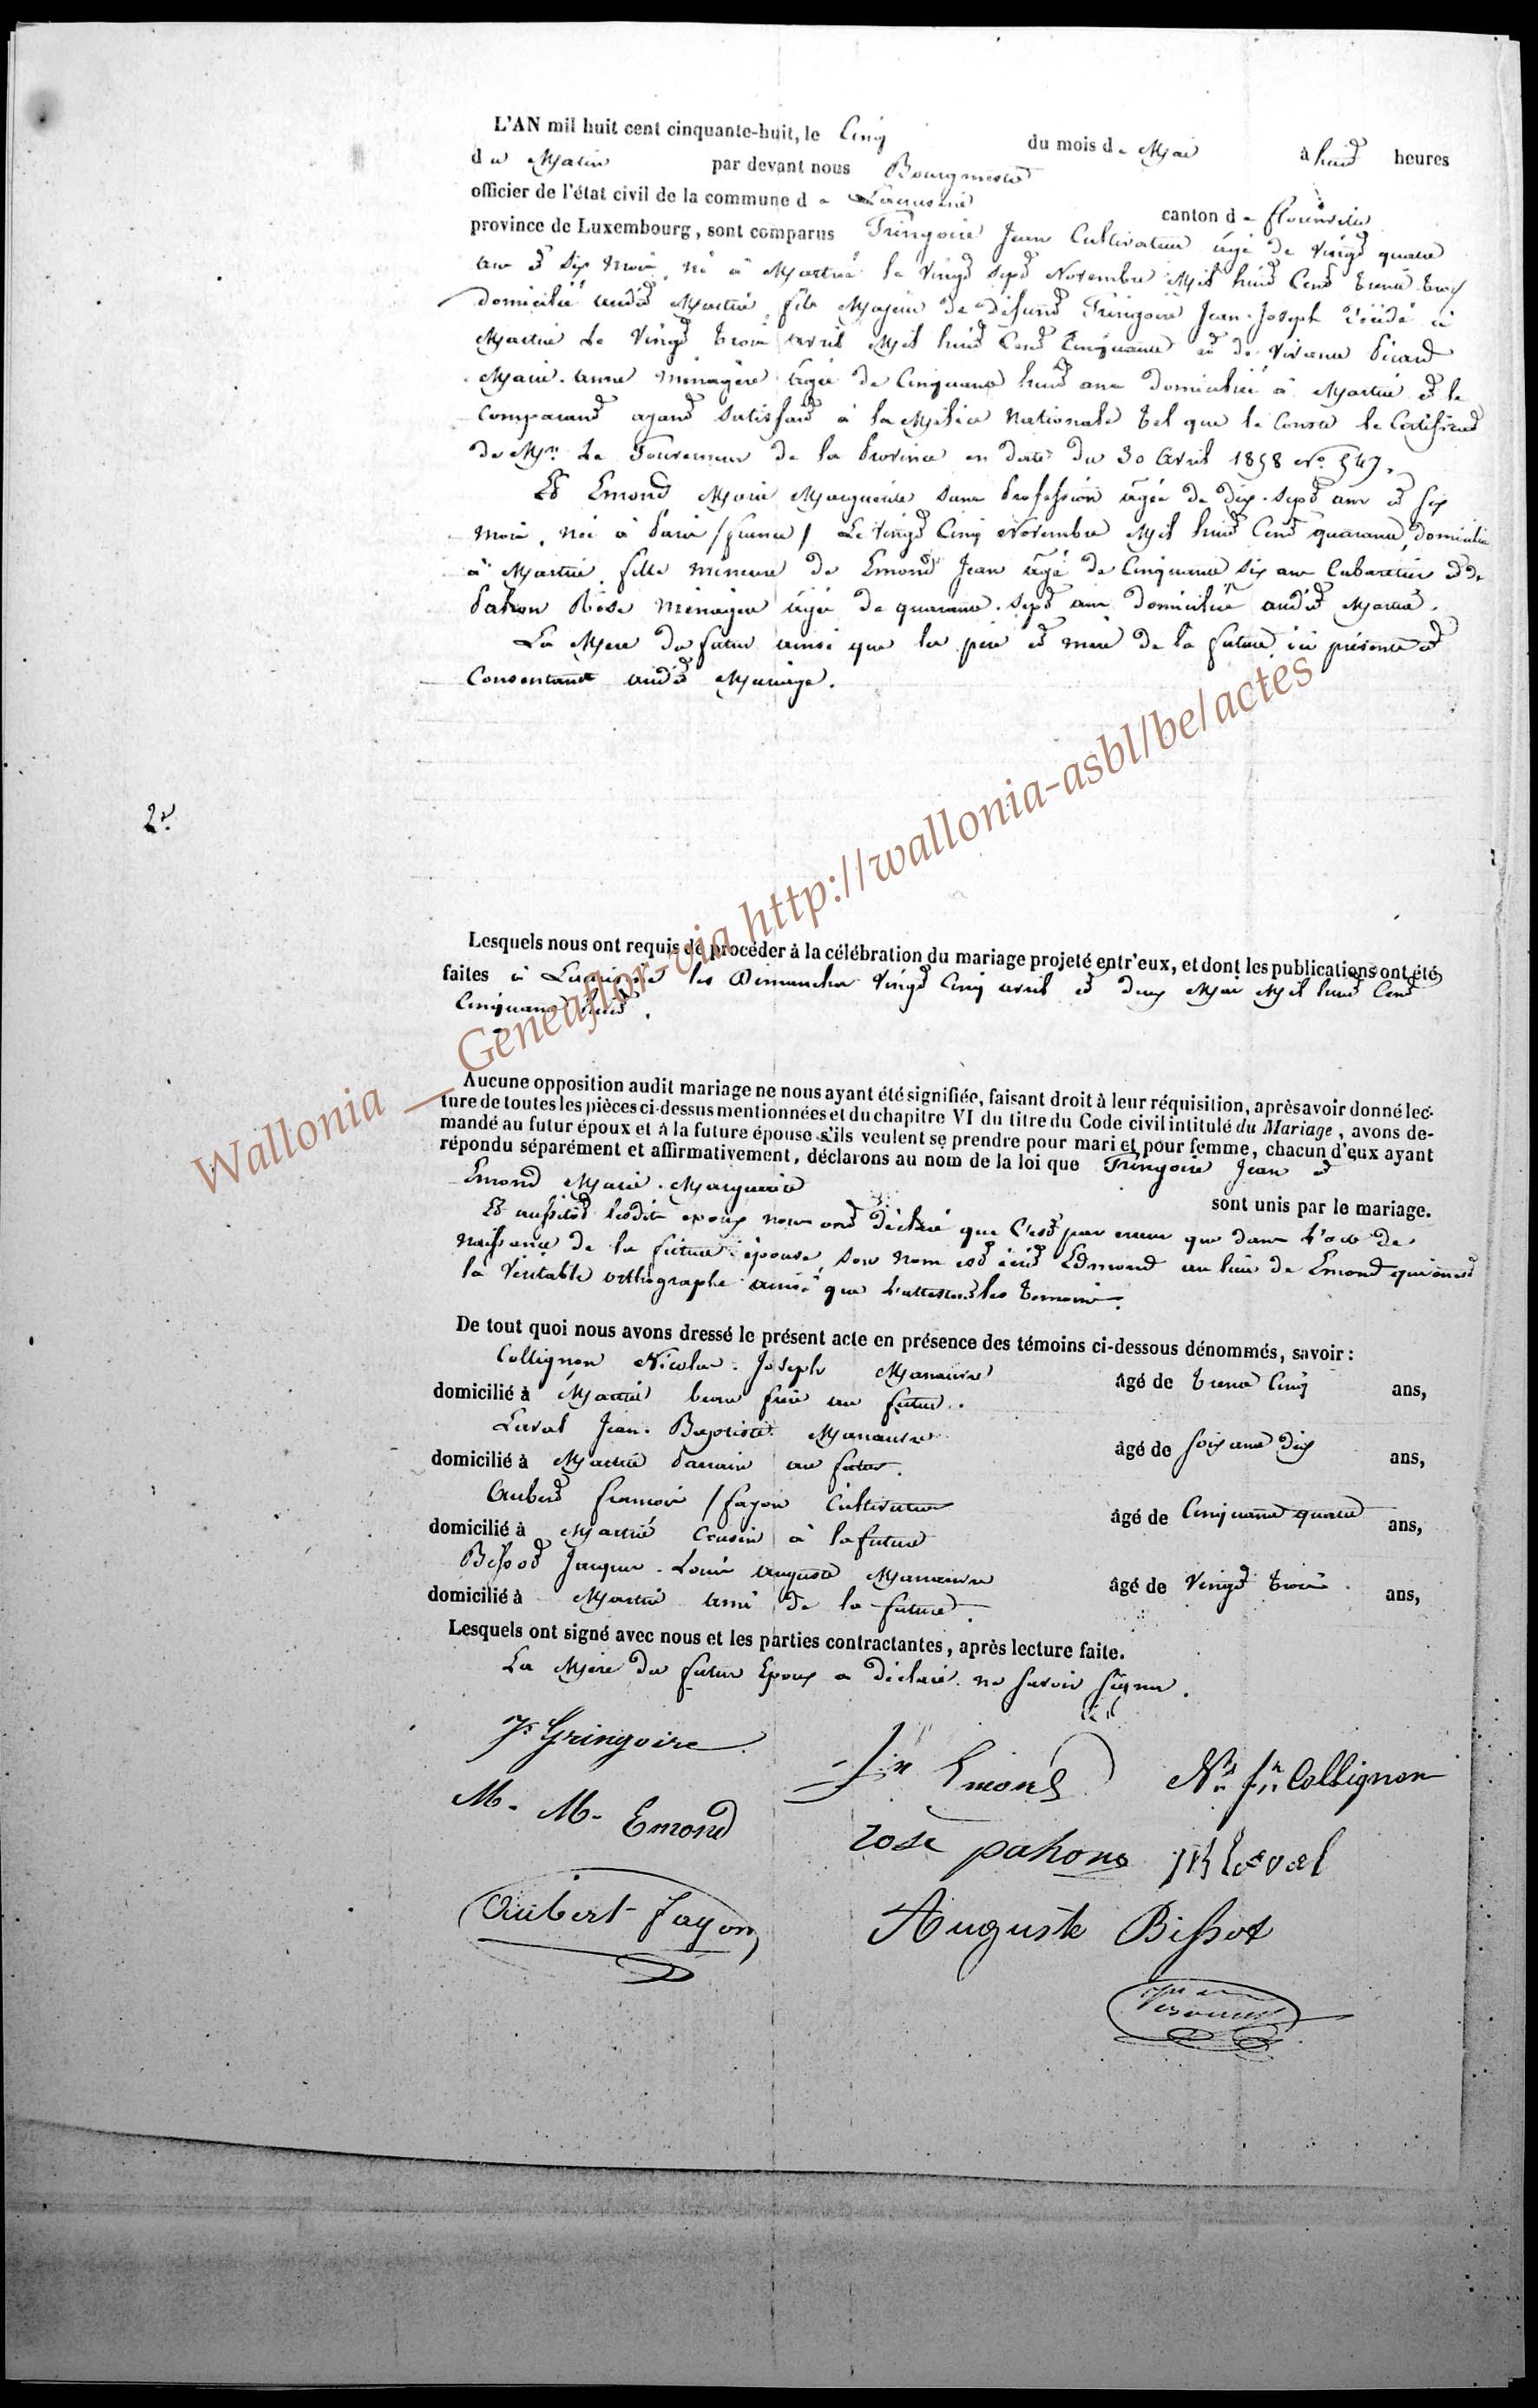 L'AN mil huit cent cinquante-huit, le Cinq du mois de Mai à huit heures
du Matin par devant nous Bourgmestre
officier de l'état civil de la commune de Lacuisine canton de florenville
province de Luxembourg, sont comparus Gringoire Jean Cultivateur âgé de Vingt quatre
ans et six mois, né à Martué le Vingt sept Novembre Mil huit Cent trente trois
domicilié audit Martué, fils Majeur de défunt Gringoire Jean-Joseph décédé à
Martué le Vingt trois avril Mil huit Cent Cinquante et de vivante Picard
Marie-anne ménagère âgée de Cinquante huit ans domiciliée à Martué et le
Comparant ayant satisfait à la Milice Nationale tel que le Conste le Certificat
de Mr. Le Gouverneur de la Province en date du 30 Avril 1858 No. 547.
Et Emond Marie Marguerite sans Profession âgée de dix-sept ans et six
mois, née à Paris /france/ Le Vingt Cinq Novembre Mil huit Cent quarante, domiciliée
à Martué, fille mineure de Emond Jean âgé de Cinquante six ans Cabaretier et de
Pahon Rose Ménagère âgée de quarante-sept ans domiciliés audit Martué.
La Mère du futur ainsi que les père et mère de la future ici présents et
Consentant audit Mariage.
2e.
Lesquels nous ont requis de procéder à la célébration du mariage projeté entr'eux, et dont les publications ont été
faites à Lacuisine les Dimanches Vingt Cinq avril et deux Mai Mil huit Cent
Cinquante huit.
Aucune opposition audit mariage ne nous ayant été signifiée, faisant droit à leur réquisition, après avoir donné lec-
ture de toutes les pièces ci-dessus mentionnées et du chapitre VI du titre du Code civil intitulé du Mariage, avons de-
mandé au futur époux et à la future épouse s'ils veulent se prendre pour mari et pour femme, chacun d'eux ayant
répondu séparément et affirmativement, déclarons au nom de la loi que Gringoire Jean et
Emond Marie-Marguerite sont unis par le mariage.
Et aussitôt lesdits époux nous ont déclaré que C'est par erreur que dans l'acte de
naissance de la future épouse, son nom est écrit Edmond au lieu de Emond qui en est
la Véritable orthographe ainsi que l'attestent les témoins.
De tout quoi nous avons dressé le présent acte en présence des témoins ci-dessous dénommés, savoir:
Collignon Nicolas-Joseph Manœuvre âgé de trente Cinq ans,
domicilié à Martué beau frère au futur.
Laval Jean-Baptiste Manœuvre âgé de soixante dix ans,
domicilié à Martué Parrain au futur.
Aubert françois /fayon Cultivateur âgé de Cinquante quatre ans,
domicilié à Martué Cousin à la future
Bissot Jacques-Louis auguste Manœuvre âgé de Vingt trois ans,
domicilié à Martué ami de la future.
Lesquels ont signé avec nous et les parties contractantes, après lecture faite.
La Mère du futur Epoux a déclaré ne savoir signer.
Jn Gringoire
Jn Emond
Ns Jh Collignon
M. M. Emond
rose pahon
JB Laval
Aubert fayon
Auguste Bissot
Wallonia __Geneaflor-via http://wallonia-asbl/be/actes